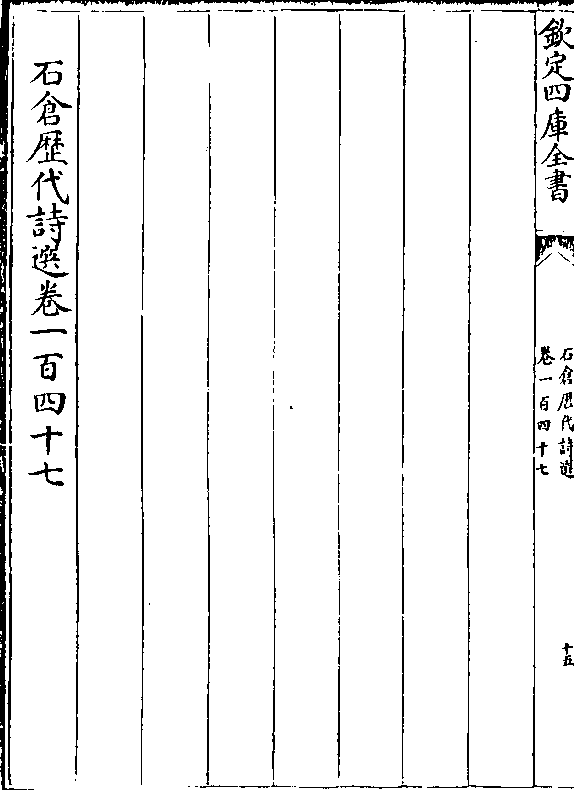 欽定四庫全書
石倉歴代詩選
卷一百四十七
十五
石倉歴代詩選卷一百四十七